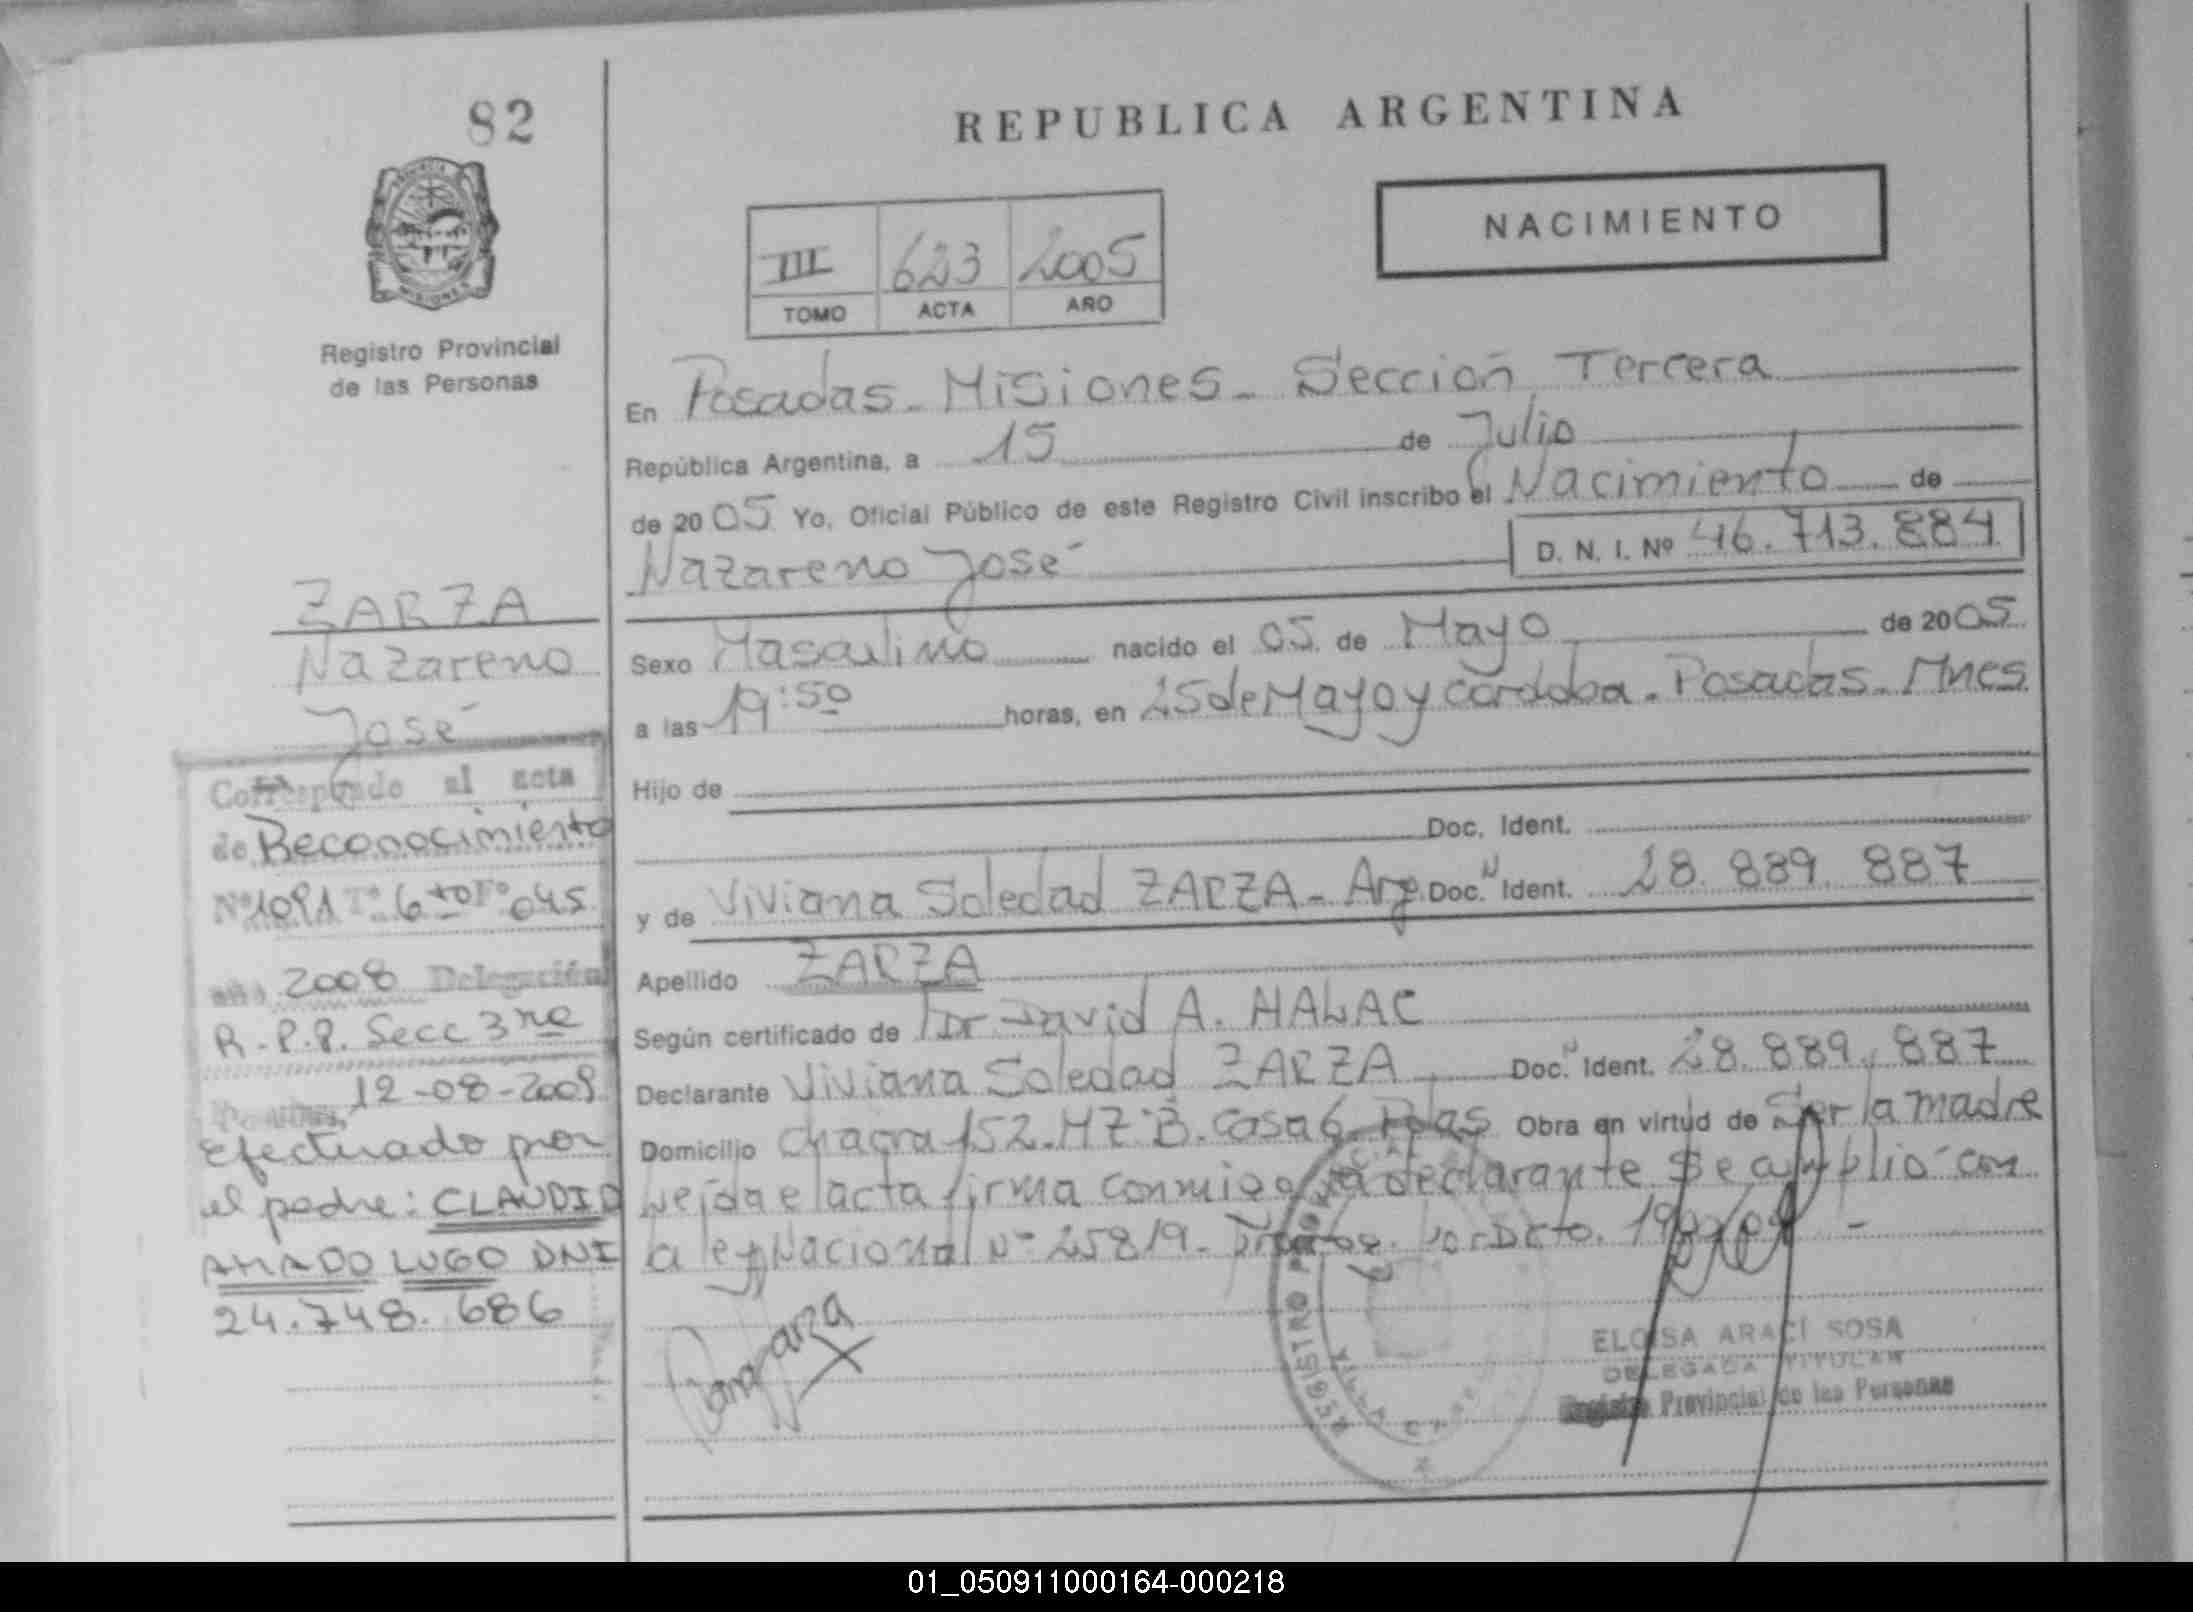 82
REPUBLICA ARGENTINA
NACIMIENTO
III 623 2005
TOMO ACTA AÑO
MISIONES
Registro Provincial
de las Personas
ZARZA
Nazareno
José
Correspondo al acta
de Reconocimiento
Nº 1091 Tº 6to Fº 045
año 2008 Delegación
R.P.P. Secc 3ra
Posadas, 12-08-2008
Efectuado por
el padre: CLAUDIO
AMADO LUGO DNI
24.748.686
En Posadas - Misiones - Sección Tercera
República Argentina, a 15 de Julio
de 2005 Yo, Oficial Público de este Registro Civil inscribo el Nacimiento de
Nazareno José D. N. I. Nº 46.713.884
Sexo Masculino nacido el 05 de Mayo de 2005
a las 19:50 horas, en 25 de Mayo y Córdoba - Posadas - Mnes
Hijo de
Doc. Ident.
y de Viviana Soledad ZARZA - Arg. Doc. N Ident. 28.889.887
Apellido ZARZA
Según certificado de Dr David A. HALAC
Declarante Viviana Soledad ZARZA Doc. N Ident. 28.889.887
Domicilio Chacra 152 - MZ B. Casa 6 - Pdas Obra en virtud de Ser la madre
leída el acta firma conmigo la declarante Se amplió con
la ley Nacional Nº 25819 - por Dcto.
REGISTRO
ELOISA ARACÍ SOSA
DELEGADA TITULAR
Registro Provincial de las Personas
01_050911000164-000218